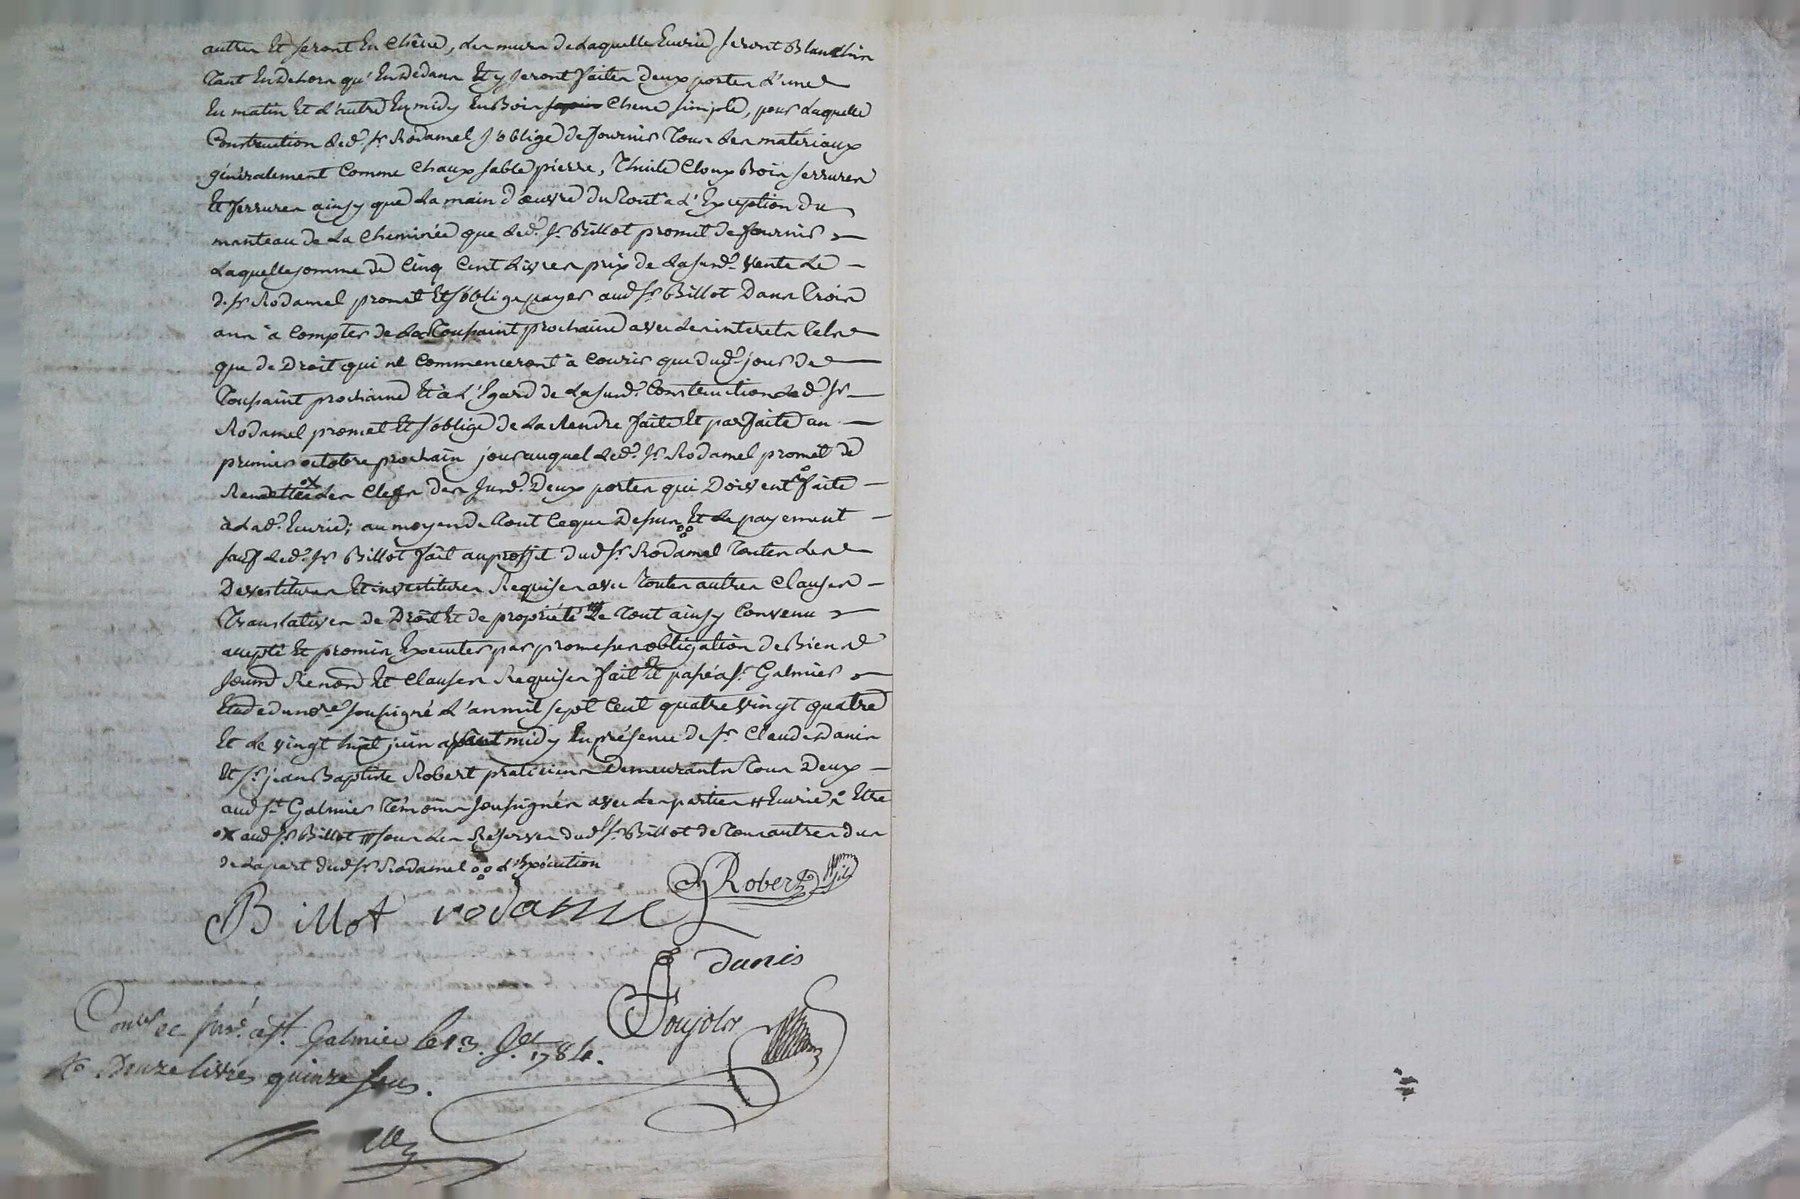 autres Et seront En Chêne, Les murs de Laquelle Ecurie seront Blanchis
Tant En dehors qu'En dedans Et y seront faites deux portes L'une
En matin Et L'autre En midy En Bois sapin Chene simple, pour Laquelle
Construction Led. Sr. Rodamel s'oblige de fournir Tous Les matériaux
généralement Comme Chaux sable pierre, Thuile Cloux Bois serrures
Et ferrures ainsy que La main d'œuvre du Tout à L'Exception du
manteau de La Cheminée que Led. Sr. Billot promet de fournir
Laquelle somme de Cinq Cent Livres prix de La susd. vente Le
d. Sr. Rodamel promet Et s'oblige payer aud. Sr. Billot Dans Trois
ans à Compter de La Toussaint prochaine avec Les interets Tels
que de Droit qui ne Commenceront à Courir que dud. jour de
Toussaint prochaine Et à L'Egard de La susd. Construction Led. Sr.
Rodamel promet Et s'oblige de La Rendre faite Et parfaite au
premier octobre prochain jour auquel Led. Sr. Rodamel promet de
Remettre ox Les Clefs des susd. Deux portes qui Doivent faite
à Lad. Ecurie; au moyen de Tout Ceque Dessus Et Le payement
sauf Led. Sr. Billot fait au proffit dud. Sr. Rodamel Toutes Les
Devestitures Et investitures Requises avec Toutes autres Clauses
Translatives de Droit Et de propriété Le Tout ainsy Convenu
accepté Et promis Executer par promesses obligation de Biens
soumd. Renond. Et Clauses Requises fait Et passé à St. Galmier
Etude du nore. soussigné L'an mil sept Cent quatre vingt quatre
Et Le vingt huit juin avant midy En présence de Sr. Claude Danis
Et Sr. jean Baptiste Robert praticiens Demeurants Tous Deux
aud. St. Galmier Témoins soussignés avec Les parties # Ecurie Etre
ox aud. Sr. Billot # sous Les Reserves dud. Sr. Billot de Tous autres dus
de La part dud. Sr. Rodamel L'Exécution
Robert
Billot rodamel
Danis
Poujols
Conlé. et Insé. à St. Galmier le 13. Jet. 1784.
Ro. Douze livres quinze sous.